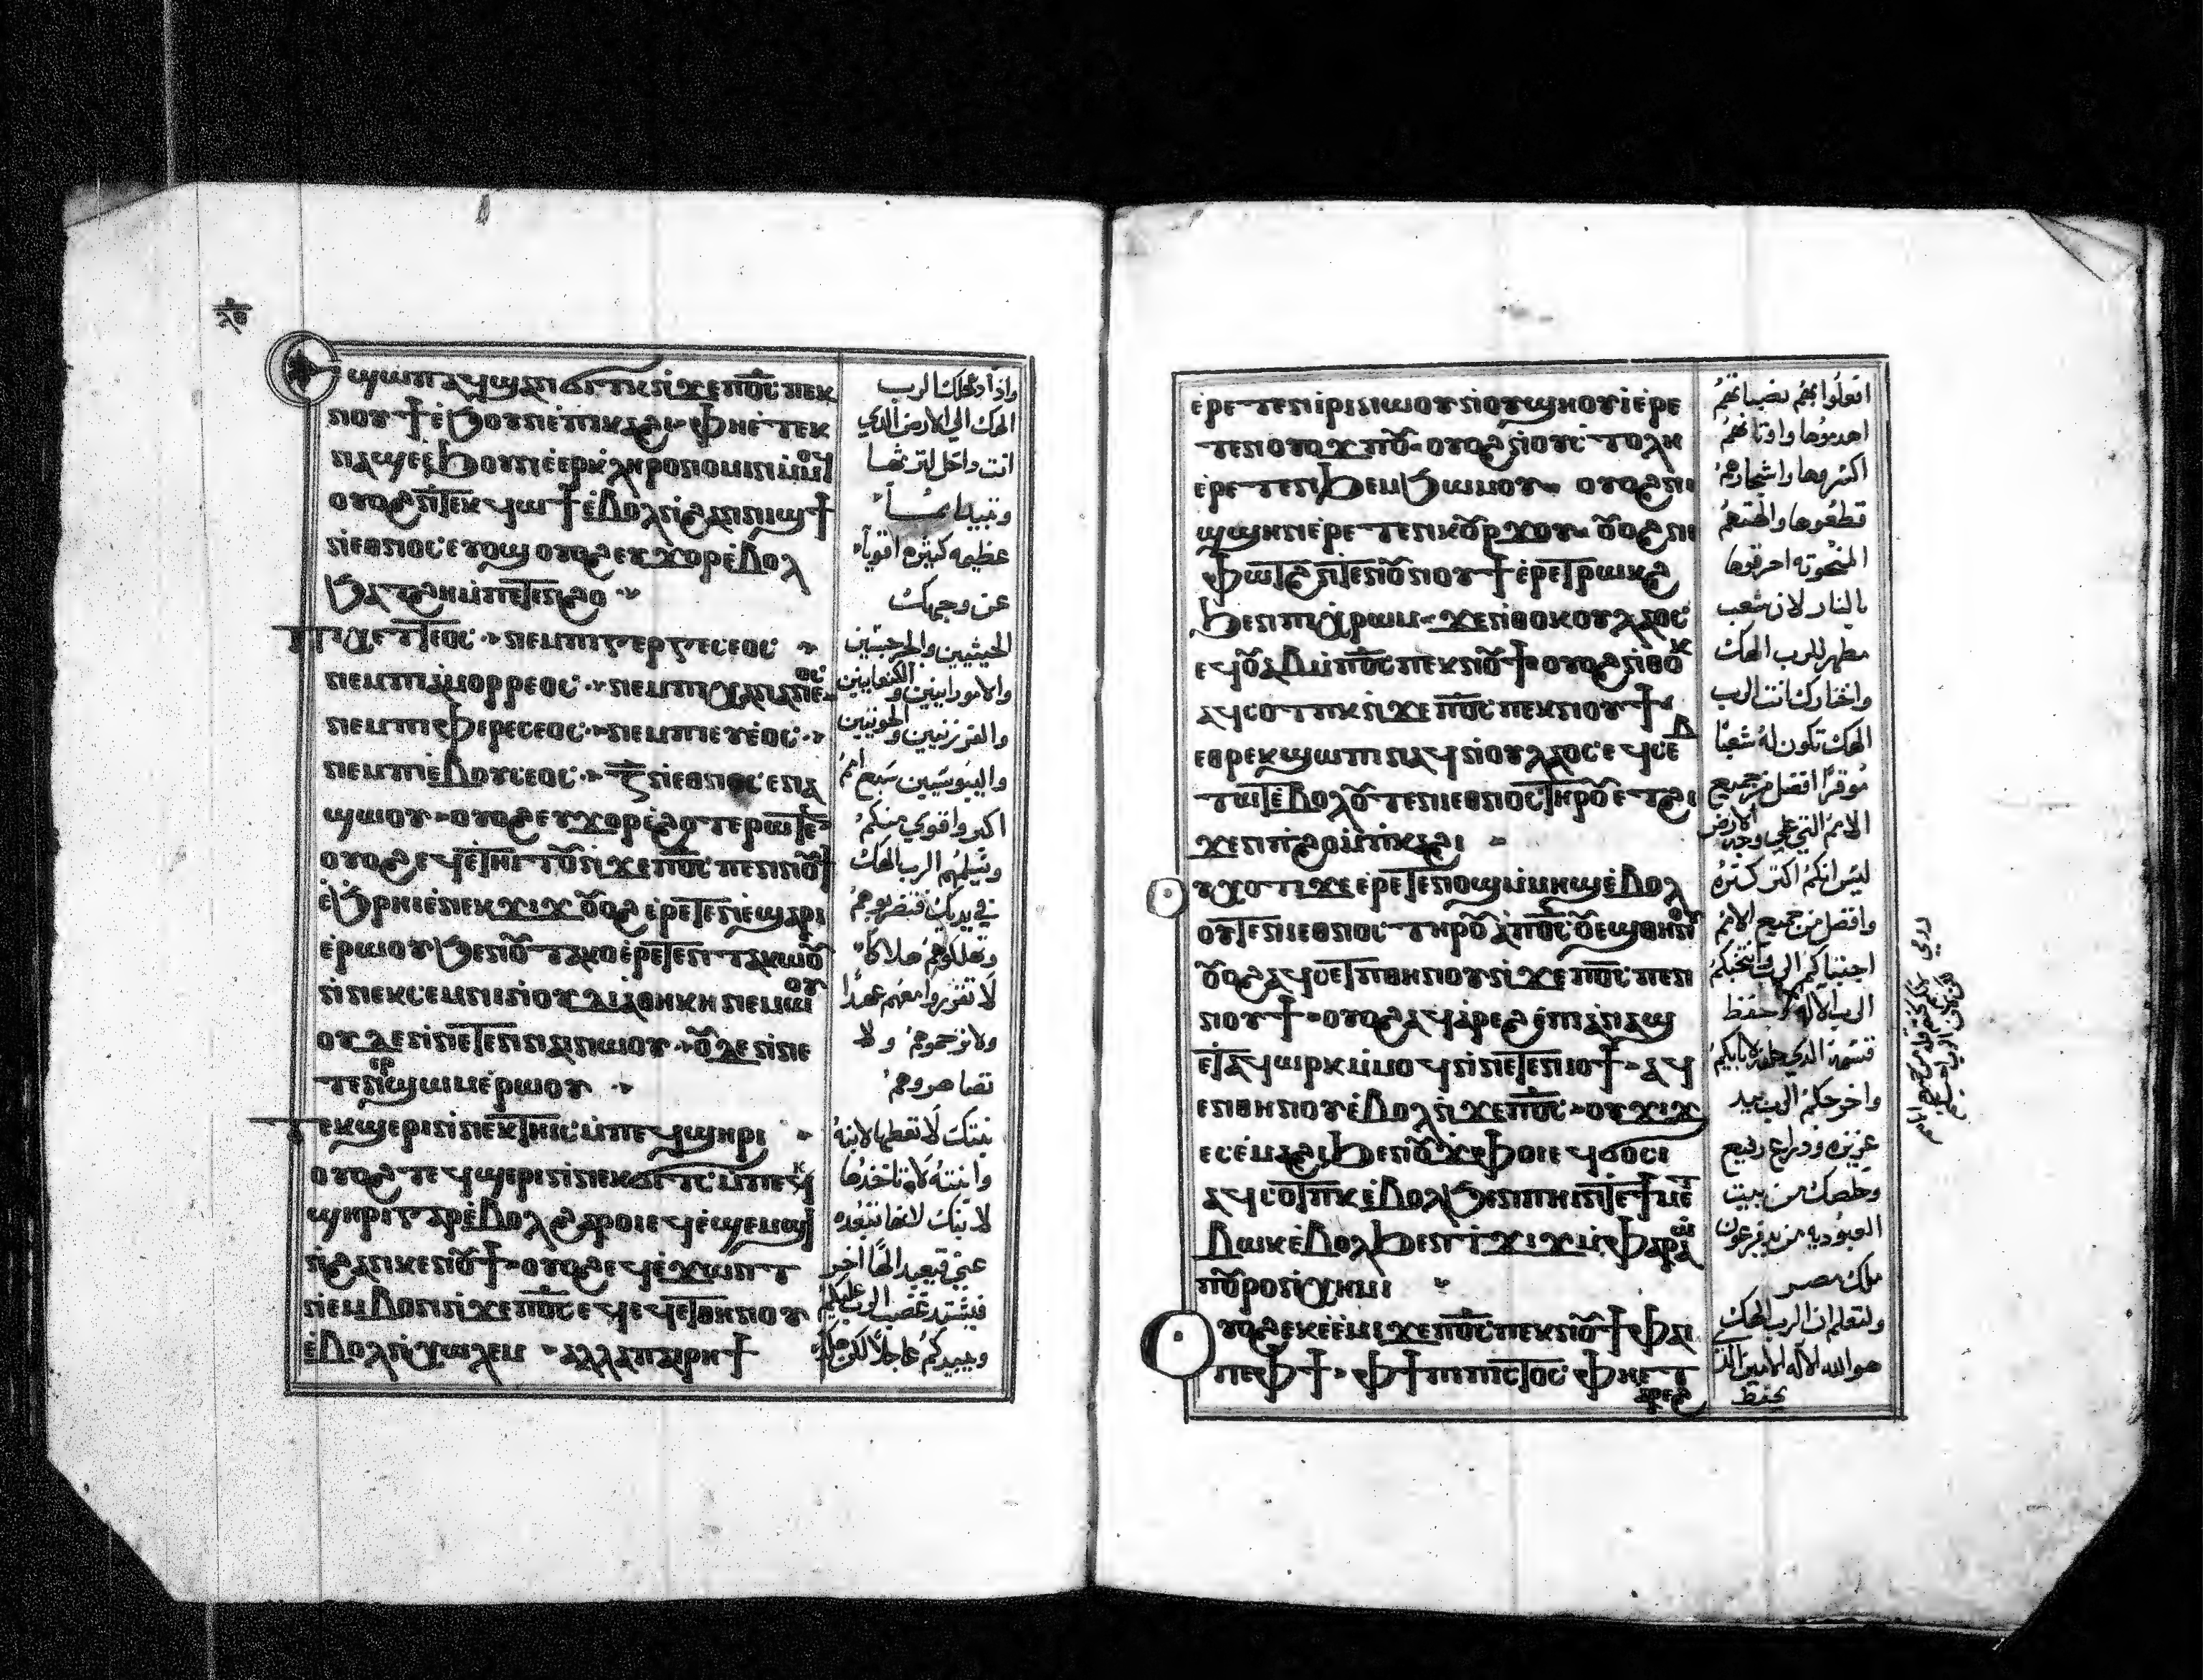 ⲛⲟⲩϯ ⲉ̀ϧⲟⲩⲛ ⲉ̀ⲡⲓⲕⲁϩⲓ ⲫⲏⲉ̀ⲧⲉⲕ
ⲛⲁϣⲉ ⲉ̀ϧⲟⲩⲛ ⲉ̀ⲉⲣⲕⲗⲏⲣⲟⲛⲟⲙⲓⲛ ⲙ̀ⲙⲟϥ
ⲟⲩⲟϩ ⲛ̀ⲧⲉϥϥⲱϯ ⲉ̀ⲃⲟⲗ ⲛ̀ϩⲁⲛⲛⲓϣϯ
ⲛ̀ⲉⲑⲛⲟⲥ ⲉⲩⲟϣ ⲟⲩⲟϩ ⲉⲩϫⲟⲣ ⲉ̀ⲃⲟⲗ
ϧⲁⲧϩⲏ ⲙ̀ⲡⲉⲧⲉⲛϩⲟ
ⲡⲓⲭⲉⲧⲧⲉⲟⲥ ⲛⲉⲙ ⲡⲓⲅⲉⲣⲅⲉⲥⲉⲟⲥ
ⲛⲉⲙ ⲡⲓⲁⲙⲟⲣⲣⲉⲟⲥ ⲛⲉⲙ ⲡⲓⲭⲁⲛⲁⲛⲉⲟⲥ
ⲛⲉⲙ ⲡⲓⲫⲉⲣⲉⲥⲉⲟⲥ ⲛⲉⲙ ⲡⲓⲉⲩⲉⲟⲥ
ⲛⲉⲙ ⲡⲓⲉ̀ⲃⲟⲩⲥⲉⲟⲥ ⲍ̅ ⲛ̀ⲉⲑⲛⲟⲥ ⲉⲛⲁ
ϣⲱⲟⲩ ⲟⲩⲟϩ ⲉⲩϫⲟⲣ ⲉ̀ϩⲟⲧⲉⲣⲱⲧⲉⲛ
ⲟⲩⲟϩ ⲉϥⲉ̀ⲧⲏⲓⲧⲟⲩ ⲛ̀ϫⲉⲡⲟ̅ⲥ̅ ⲡⲉⲛⲛⲟⲩϯ
ⲉ̀ϧⲣⲏⲓ ⲉ̀ⲛⲉⲕϫⲓϫ ⲟⲩⲟϩ ⲉ̀ⲣⲉⲧⲉⲛⲉ̀ϣⲁⲣⲓ
ⲉ̀ⲣⲱⲟⲩ ϧⲉⲛⲟⲩⲧⲁⲕⲟ ⲉ̀ⲣⲉⲧⲉⲛⲧⲁⲕⲱⲟⲩ
ⲛ̀ⲛⲉⲕⲥⲉⲙⲛⲓ ⲛ̀ⲟⲩⲇⲓⲁⲑⲏⲕⲏ ⲛⲉⲙⲱⲟⲩ
ⲟⲩⲇⲉ ⲛ̀ⲛⲉⲧⲉⲛⲛⲁⲓ ⲛⲱⲟⲩ ⲟⲩⲇⲉ ⲛ̀ⲛⲉ
ⲧⲉⲛⲉⲣϣⲱⲙ ⲉ̀ⲣⲱⲟⲩ
ⲧⲉⲕϣⲉⲣⲓ ⲛ̀ⲛⲉⲕⲧⲏⲓⲥ ⲙ̀ⲡⲉϥϣⲏⲣⲓ
ⲟⲩⲟϩ ⲧⲉϥϣⲉⲣⲓ ⲛ̀ⲛⲉⲕϭⲓⲧⲥ ⲙ̀ⲡⲉⲕ
ϣⲏⲣⲓ ⲅⲁⲣ ⲉ̀ⲃⲟⲗϩⲁⲣⲟⲓ ⲉϥⲉ̀ϣⲉⲙϣⲓ
ⲛ̀ϩⲁⲛⲕⲉⲛⲟⲩϯ ⲟⲩⲟϩ ⲉϥⲉ̀ϫⲱⲛⲧ
ⲛ̀ⲉⲙⲃⲟⲛ ⲛ̀ϫⲉⲡⲟ̅ⲥ̅ ⲉϥⲉϥⲉⲧⲑⲏⲛⲟⲩ
ⲉ̀ⲃⲟⲗ ⲛ̀ⲭⲱⲗⲉⲙ ⲁⲗⲗⲁ ⲡⲁⲓⲣⲏϯ
واذا ادخلك الرب
الهك الي الارض الذي
انت داخل لترثها
عظيمه كثيره اقوياء
عن وجهك
الحيثيين والجرجسيين
والامورانيين والكنعانيين
والفرزيين والحويين
واليبوسيين سبع امم
اكبر واقوي منكم
ويسلمهم الرب الهك
في يديك فتضربوهم
وتهلكوهم هلاكا
لا تقرروا معهم عهدا
ولا ترحموهم ولا
تصاهروهم
بنتك لا تعطها لابنه
وابنته لا تاخذها
لابنك لانها تبعده
عني فيعبد الها اخر
فيشتد غضب الرب عليكم
ويبيدكم عاجلا لكن هكذا
ⲉ̀ⲣⲉⲧⲉⲛⲓ̀ⲣⲓ ⲛⲱⲟⲩ ⲛⲟⲩϣⲏⲟⲩⲓ̀ ⲉ̀ⲣⲉ
ⲧⲉⲛⲟⲩⲟϫⲡⲟⲩ ⲟⲩⲟϩ ⲛⲟⲩⲥⲧⲩⲗⲏ
ⲉ̀ⲣⲉⲧⲉⲛϧⲉⲙϧⲱⲙⲟⲩ ⲟⲩⲟϩ ⲛⲓ
ϣϣⲏⲛ ⲉ̀ⲣⲉⲧⲉⲛⲕⲟⲣϫⲟⲩ ⲟⲩⲟϩ ⲛⲓ
ⲫⲱⲧϩ ⲛ̀ⲧⲉⲛⲟⲩⲛⲟⲩϯ ⲉ̀ⲣⲉⲧⲣⲱⲕϩ
ϧⲉⲛⲡⲓⲭⲣⲱⲙ ϫⲉⲛ̀ⲑⲟⲕ ⲟⲩⲗⲁⲟⲥ
ⲉϥⲟⲩⲁⲃ ⲙ̀ⲡⲟ̅ⲥ̅ ⲡⲉⲕⲛⲟⲩϯ ⲟⲩⲟϩ ⲛ̀ⲑⲟⲕ
ⲁϥⲥⲟⲧⲡⲕ ⲛ̀ϫⲉⲡⲟ̅ⲥ̅ ⲡⲉⲕⲛⲟⲩϯ
ⲉⲑⲣⲉⲕϣⲱⲡⲓ ⲛⲁϥ ⲛⲟⲩⲗⲁⲟⲥ ⲉϥⲥⲉⲃ
ⲧⲱⲧ ⲉ̀ⲃⲟⲗⲟⲩⲧⲉ ⲛⲓⲉⲑⲛⲟⲥ ⲧⲏⲣⲟⲩ ⲉⲧϩⲓ
ϫⲉⲛⲡϩⲟ ⲙ̀ⲡⲓⲕⲁϩⲓ
ⲟⲩⲭⲟⲧⲓ ϫⲉ ⲉ̀ⲣⲉⲧⲉⲛⲟϣ ⲙ̀ⲙⲏϣ ⲉ̀ⲃⲟⲗ
ⲟⲩⲧⲉ ⲛⲓⲉⲑⲛⲟⲥ ⲧⲏⲣⲟⲩ ⲁ̀ⲡⲟ̅ⲥ̅ ⲟⲩⲉϣⲑⲏⲛⲟⲩ
ⲟⲩⲟϩ ⲁϥⲥⲉⲧⲡⲑⲏⲛⲟⲩ ⲛ̀ϫⲉⲡⲟ̅ⲥ̅ ⲡⲉⲛ
ⲛⲟⲩϯ ⲟⲩⲟϩ ⲁϥⲁ̀ⲣⲉϩ ⲉ̀ⲡⲁⲛⲁϣ
ⲉⲧⲁϥⲱⲣⲕ ⲙ̀ⲙⲟϥ ⲛ̀ⲛⲉⲧⲉⲛⲓⲟϯ ⲁϥ
ⲉⲛⲑⲏⲛⲟⲩ ⲉ̀ⲃⲟⲗ ⲛ̀ϫⲉⲡⲟ̅ⲥ̅ ⲟⲩϫⲓϫ
ⲉⲥⲉ̀ⲙⲁϩⲓ ϧⲉⲛⲟⲩϫⲫⲟⲓ ⲉϥϭⲟⲥⲓ
ⲁϥⲥⲟⲧⲡⲕ ⲉ̀ⲃⲟⲗϧⲉⲛⲡⲏⲓ ⲛ̀ⲧⲉϯⲙⲉⲧ
ⲃⲱⲕ ⲉ̀ⲃⲟⲗϧⲉⲛⲧϫⲓϫ ⲙ̀ⲫⲁⲣⲁⲱ
ⲡⲟⲩⲣⲟ ⲛ̀ⲭⲏⲙⲓ
ⲟⲩⲟϩ ⲉⲕⲉ̀ⲉ̀ⲙⲓ ϫⲉⲡⲟ̅ⲥ̅ ⲡⲉⲕⲛⲟⲩϯ ⲫⲁⲓ
ⲡⲉ ⲫϯ ⲫϯ ⲡⲓⲡⲓⲥⲧⲟⲥ ⲫⲏⲉⲧ
ⲁⲣⲉϩ
افعلوا بهم نصباتهم
اهدموها واوثانهم
اكسروها واشجارهم
قطعوها والهتهم
المنحوته احرقوها
بالنار لان شعب
مطهر للرب الهك
واختارك انت الرب
الهك تكون له شعبا
موقرا افضل من جميع
الامم التي علي وجه الارض
ليس انكم اكثر كثره
وافضل من جميع الامم
اجتباكم الرب وانتخبكم
الرب الاله وحفظ
قسمه الذي حلف لابايكم
واخرجكم الرب بيد
عزيزه وذراع رفيع
وخلصك من بيت
العبوديه من يد فرعون
ملك مصر
ولتعلم ان الرب الهك
هو الله الاله الامين الذي
يحفظ